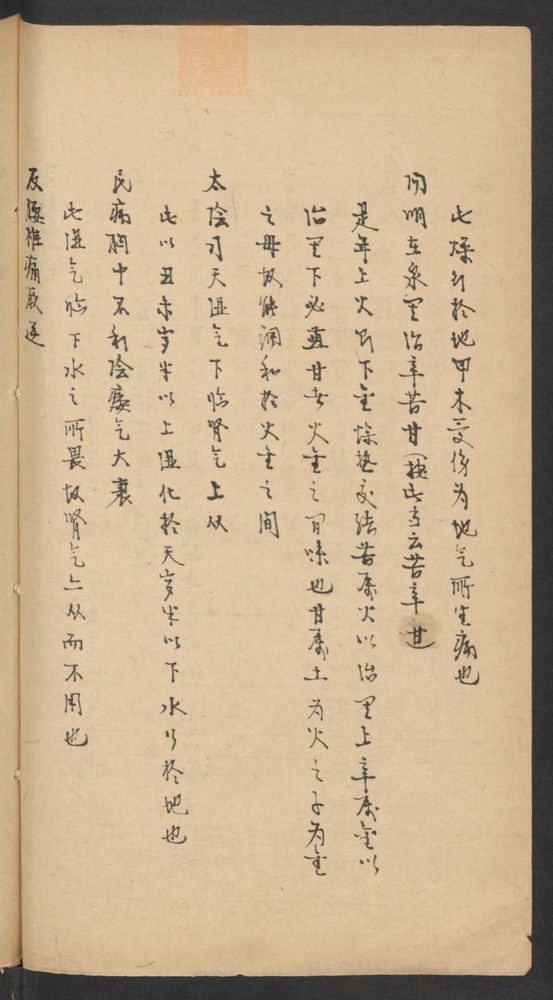 此燥行於地甲木受傷为地气所生病也
陽明在泉里治辛苦甘(按此当云苦辛甘
是年上火而下金燥热交结苦属火以治里上辛属金以
治里下必兼甘者火金之间味也甘属土为火之子为金
之母故能调和於火金之间
太陰司天湿气下临腎气上从
此以丑未岁半以上湿化於天岁半以下水行於地也
民病胸中不利陰痿气大衰
此湿气临下水之所畏故腎气上从而不用也
反腰椎痛厥逆